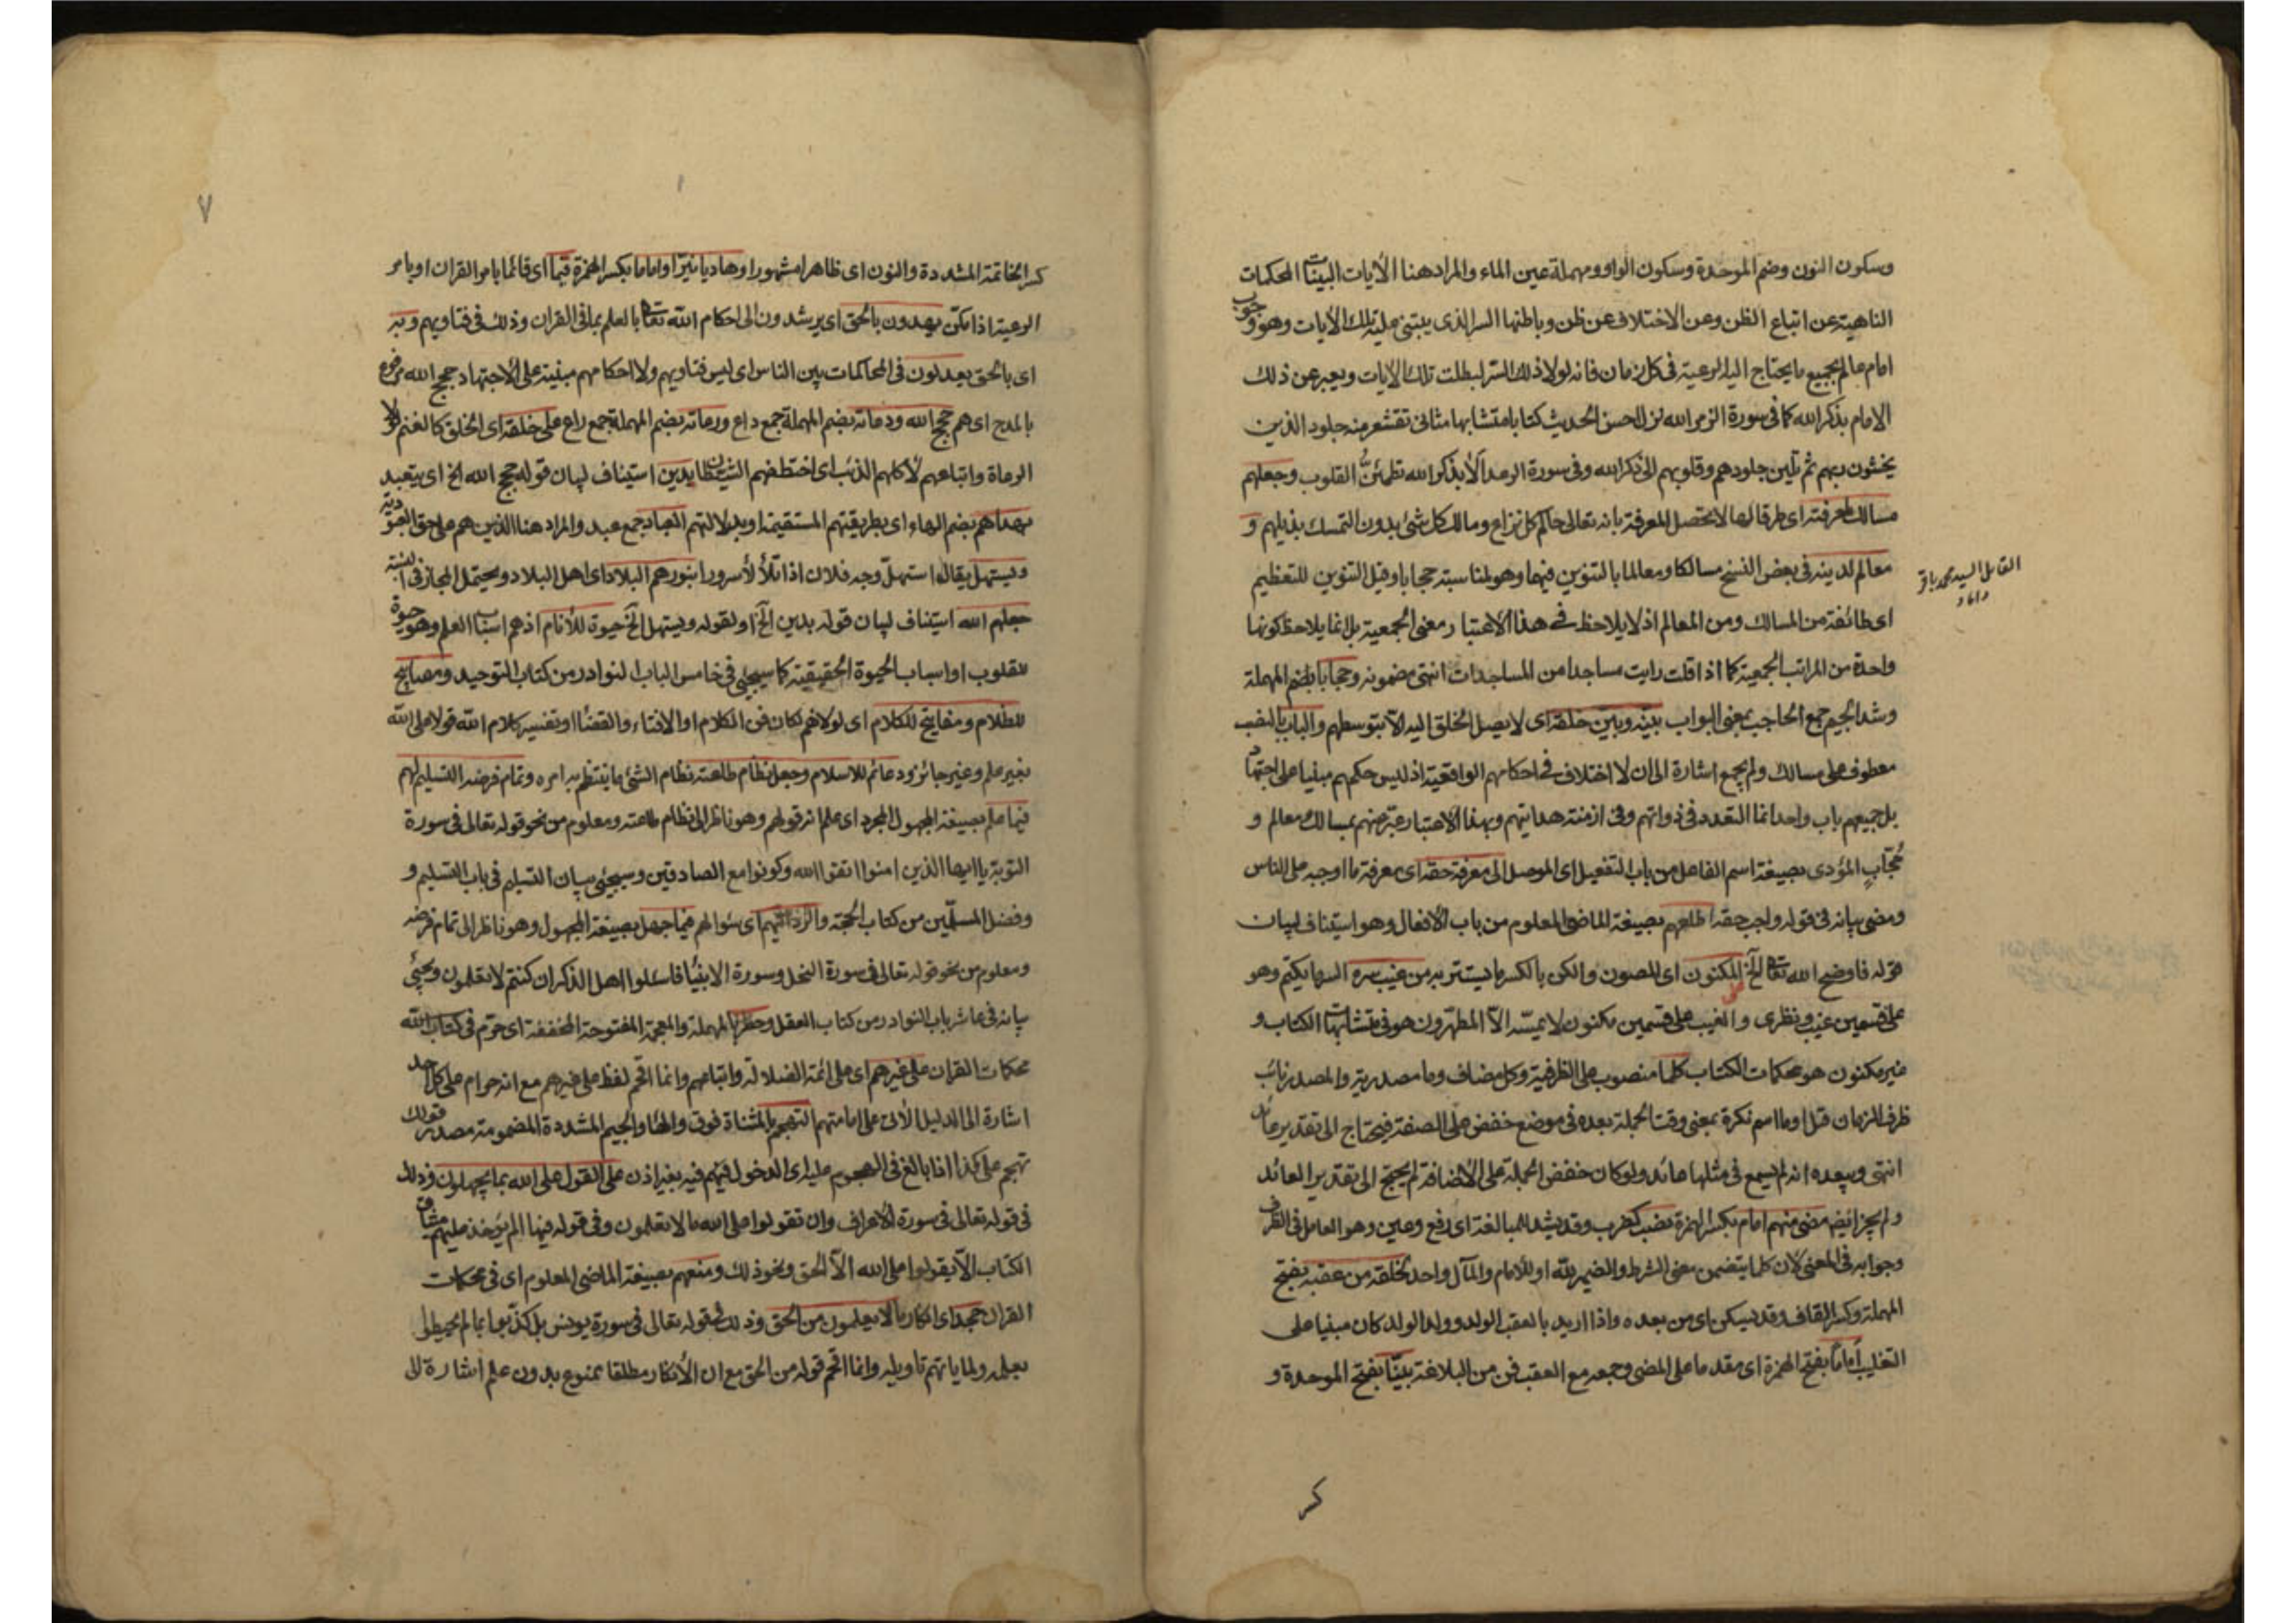 وسكون النون وضم الموحدة وسكون الواو ومهملة عين الماء والمراد هنا الآيات البينات المحكمات
الناهية عن اتباع الظن وعن الاختلاف عن ظن وباطنها السر الذى يبتنى عليه تلك الآيات وهو وجوب
امام عالم بجميع ما يحتاج اليه الرعية فى كل زمان فانه لولا ذلك السر لبطلت تلك الايات ويعبر عن ذلك
الامام بذكر الله كما فى سورة الزمر الله نزل احسن الحديث كتابا متشابها مثانى تقشعر منه جلود الذين
يخشون ربهم ثم تلين جلودهم وقلوبهم الى ذكر الله وفى سورة الرعد ألا بذكر الله تطمئن القلوب وجعلهم
مسالك لمعرفته اى طرقا لها لا يحصل المعرفة بانه تعالى حاكم كل نزاع ومالك كل شئ بدون التمسك بذيلهم و
معالم لدينه فى بعض النسخ مسالكا ومعالما بالتنوين فيهما وهو لمناسبة حجابا وقيل التنوين للتعظيم
القايل السيد محمد باقر
داماد
اى طائفة من المسالك ومن المعالم اذ لا يلاحظ فى هذا الاعتبار معنى الجمعية بل انما يلاحظ كونها
واحدة من المراتب الجمعية كما اذا قلت رايت مساجدا من المساجدات انتهى مضمونه وحجابا بضم المهملة
وشد الجيم جمع الحاجب بمعنى البواب بينه وبين خلقه اى لا يصل الخلق اليه الا بتوسطهم والباب بالنصب
معطوف على مسالك ولم يجمع اشارة الى ان لا اختلاف فى احكامهم الواقعية اذ ليس حكمهم مبنيا على اجتهاد
بل جميعهم باب واحد انما التعدد فى ذواتهم وفى ازمنة هدايتهم وبهذا الاعتبار عبر عنهم بمسالك ومعالم و
حُجّابٍ المؤدى بصيغة اسم الفاعل من باب التفعيل اى الموصل الى معرفة حقه اى معرفة ما اوجبه على الناس
ومضى بيانه فى قوله ولجب حقه اطلعهم بصيغة الماضى المعلوم من باب الافعال وهو استيناف لبيان
قوله فاوضح الله تعالى الخ المكنون اى المصون والكن بالكسر ما يستتر به من غيب سره السر ما يكتم وهو
على قسمين غيب ونظرى والغيب على قسمين مكنون لا يمسه الا المطهرون هو فى متشابهات الكتاب و
غير مكنون هو محكمات الكتاب كلما منصوب على الظرفية وكل مضاف وما مصدرية والمصدر نائب
ظرف الزمان قيل او ما اسم نكرة بمعنى وقت الجملة بعده فى موضع خفض على الصفة فيحتاج الى تقدير عائد
انتهى ويبعده انه لم يسمع فى مثلها عائد ولو كان خفض الجملة على الاضافة لم يحتج الى تقدير العائد
ولم يجز ايضا مضى منهم امام بكسر الهمزة نصب كضرب وقد يشد للمبالغة اى رفع وعين وهو العامل فى الظرف
وجوابه فى المعنى لان كلما يتضمن معنى الشرط والضمير لله او للامام والمآل واحد لخلقه من عقبه بفتح
المهملة وكسر القاف وقد يسكن اى من بعده واذا اريد بالعقب الولد وولد الولد كان مبنيا على
التغليب أماما بفتح الهمزة اى مقدما على المضى وجمعه مع العقب فن من البلاغة بيّنا بفتح الموحدة و
كر
٧
كسر الخاتمة المشددة والنون اى ظاهرا مشهورا وهاديا نيرا واماما بكسر الهمزة قيما اى قائما بامر القران او بامر
الرعية اذا تمكن يهدون بالحق اى يرشدون الى احكام الله تعالى بالعلم بما فى القران وذلك فى فتاويهم وبه
اى بالحق يعدلون فى المحاكمات بين الناس اى ليس فتاويهم ولا احكامهم مبنية على الاجتهاد حجج الله مرفوع
بالمدح اى هم حجج الله ودعاته بضم المهملة جمع داع ورعاته بضم المهملة جمع راع على خلقه اى الخلق كالغنم لولا
الرعاة واتباعهم لاكلهم الذئب اى اختطفهم الشيطان يدين استيناف لبيان قوله حجج الله الخ اى يتعبد
بهداهم بضم الهاء اى بطريقتهم المستقيمة او بدلالتهم العباد جمع عبد والمراد هنا الذين هم على حق العبودية
ويستهل يقال استهل وجه فلان اذا تلألأ سرورا بنورهم البلاد اى اهل البلاد ويحتمل المجاز فى النسبة
جعلهم الله استيناف لبيان قوله يدين الخ او لقوله ويستهل الخ حيوة للأنام اذ هم اسباب العلم وهو حيوة
للقلوب او اسباب الحيوة الحقيقية كما سيجئ فى خامس الباب النوادر من كتاب التوحيد ومصابيح
للظلام ومفاتيح للكلام اى لولاهم لكان فن الكلام او الافتاء والقضاء او تفسير كلام الله قولا على الله
بغير علم وغير جائز ودعائم للاسلام وجعل نظام طاعته نظام الشئ ما ينتظم به امره وتمام فرضه التسليم لهم
فيما علم بصيغة المجهول المجرد اى علم انه قولهم وهو ناظر الى نظام طاعته ومعلوم من نحو قوله تعالى فى سورة
التوبة يا ايها الذين امنوا اتقوا الله وكونوا مع الصادقين وسيجئ بيان التسليم فى باب التسليم و
وفضل المسلمين من كتاب الحجة والرد اليهم اى سؤالهم فيما جهل بصيغة المجهول وهو ناظر الى تمام فرضه
ومعلوم من نحو قوله تعالى فى سورة النحل وسورة الانبياء فاسئلوا اهل الذكر ان كنتم لا تعلمون ويجئ
بيانه فى عاشر باب النوادر من كتاب العقل وحظر بالمهملة والمعجمة المفتوحة المخففة اى حرم فى كتاب الله
محكمات القران على غيرهم اى على ائمة الضلالة واتباعهم وانما اقحم لفظ على غيرهم مع انه حرام على كل احد
اشارة الى الدليل الآتى على امامتهم التهجم بالمثناة فوق والهاء والجيم المشددة المضمومة مصدر قولك
تهجم على كذا اذا بالغ فى الهجوم عليه اى الدخول فيه بغير اذن على القول على الله بما يجهلون وذلك
فى قوله تعالى فى سورة الاعراف وان تقولوا على الله ما لا تعلمون وفى قوله فيها الم يؤخذ عليهم ميثاق
الكتاب الا يقولوا على الله الا الحق ونحو ذلك ومنعهم بصيغة الماضى المعلوم اى فى محكمات
القران جحد اى انكار ما لا يعلمون من الحق وذلك كقوله تعالى فى سورة يونس بل كذبوا بما لم يحيطوا
بعلمه ولما ياتهم تاويله وانما اقحم قوله من الحق مع ان الانكار مطلقا ممنوع بدون علم اشارة الى